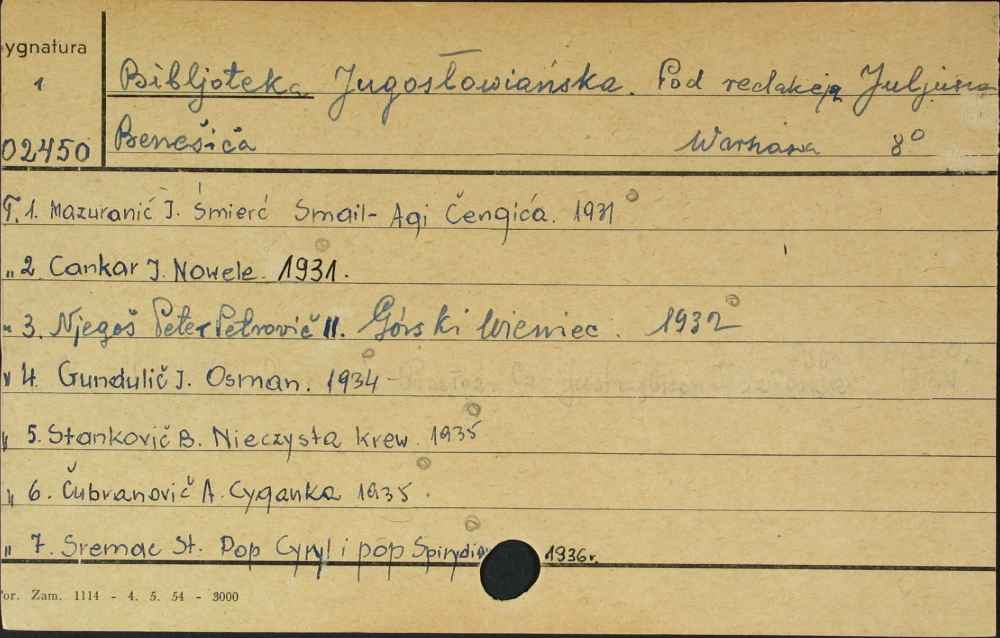 ygnatura
1 Bibljoteka Jugosłowiańska. Pod redakcją Juljusza
02450 Benešića Warszawa 8°
T. 1. Mazuranić J. Śmierć Smail-Agi Čengića. 1931
„ 2. Cankar J. Nowele. 1931.
„ 3. Njegoš Peter Petrovič II. Górski Wieniec. 1932
„ 4. Gundulič J. Osman. 1934
„ 5. Stankovič B. Nieczysta krew. 1935
„ 6. Čubranovič A. Cyganka 1935.
„ 7. Sremac St. Pop Cyryl i pop 1936r.
or. Zam. 1114 - 4. 5. 54 - 3000